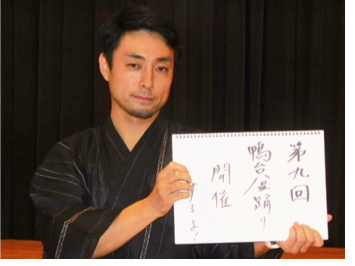 第九回
鴨台盆踊り
開催
するよ!